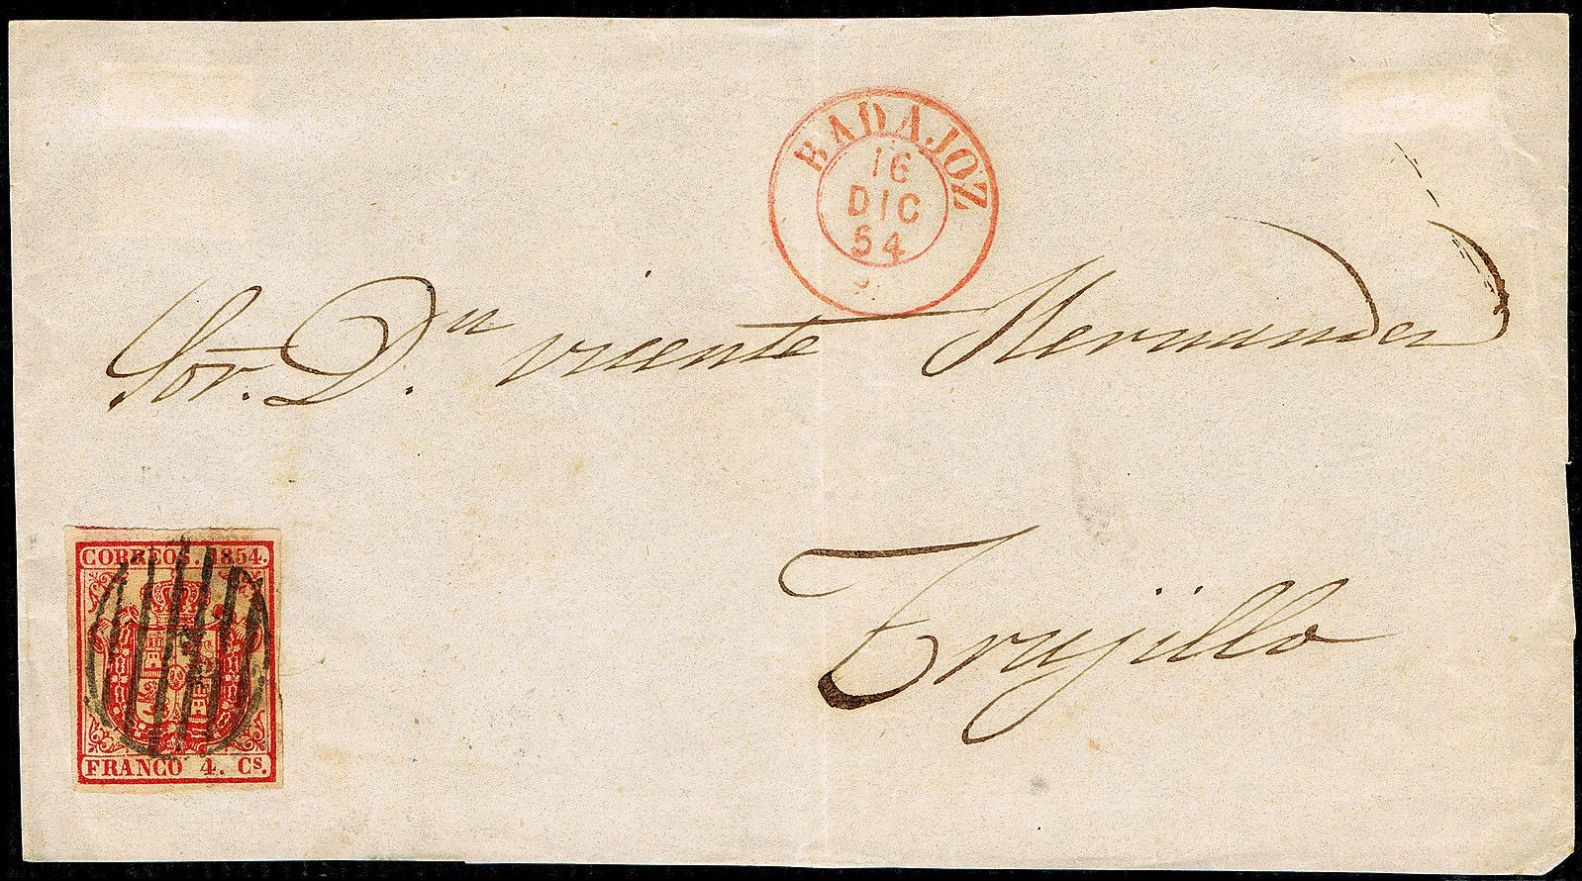 BADAJOZ
16
DIC
54
Sor. Dn. vicente Hernandez
Trujillo
CORREOS. 1854.
FRANCO 4. Cs.